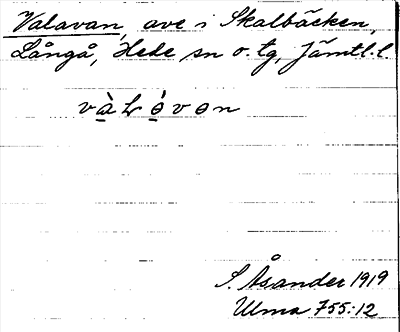 Valavan, ave i Skalbäcken,
Långå, Hede sn o. tg, Jämtl. l.
S. Åsander 1919
Ulma 755:12